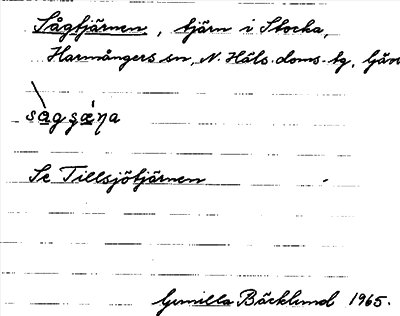 Sågtjärnen, tjärn i Stocka,
Harmångers sn, N. Häls. doms. tg,
Se Tillsjötjärnen
Gunilla Bäcklund 1965.